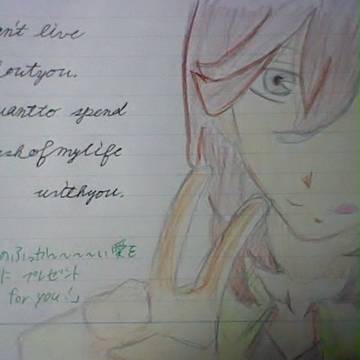 n't live
outyou.
wantto spend
eshofmylife
withyou.
のふっかい〜〜〜〜い愛を
に プレゼント
for you!」